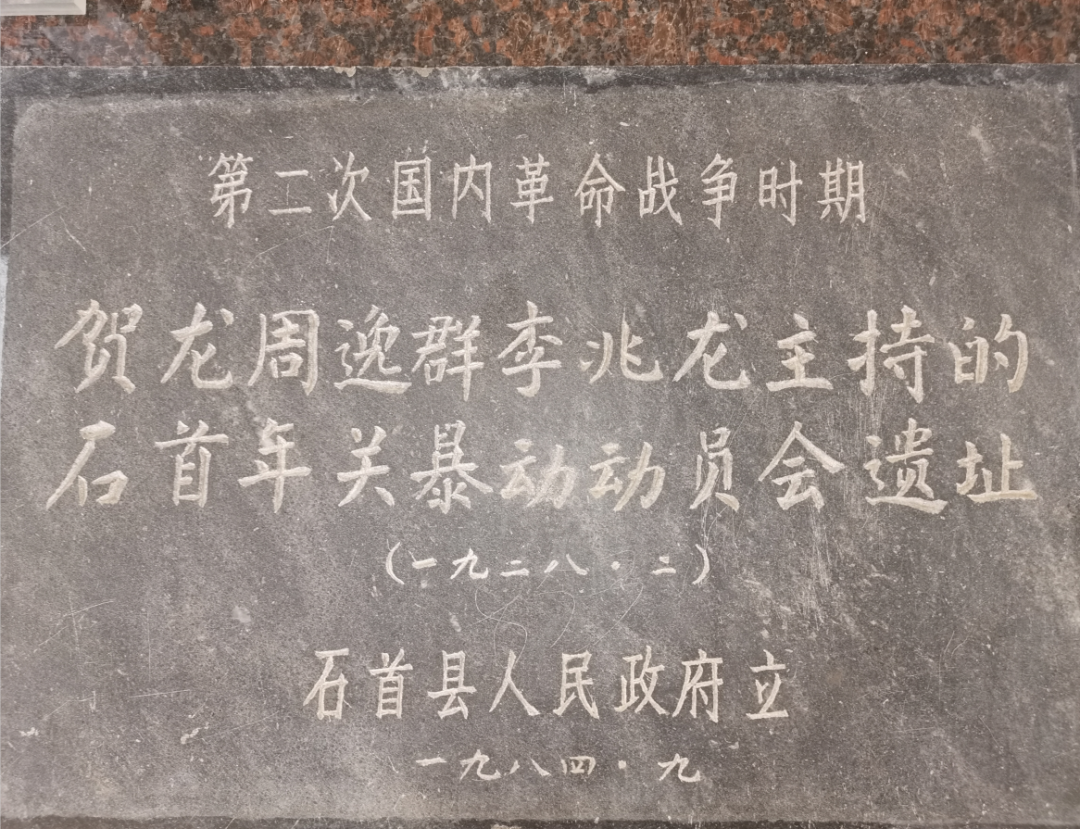 第二次国内革命战争时期
贺龙周逸群李兆龙主持的
石首年关暴动动员会遗址
(一九二八·二)
石首县人民政府立
一九八四·九